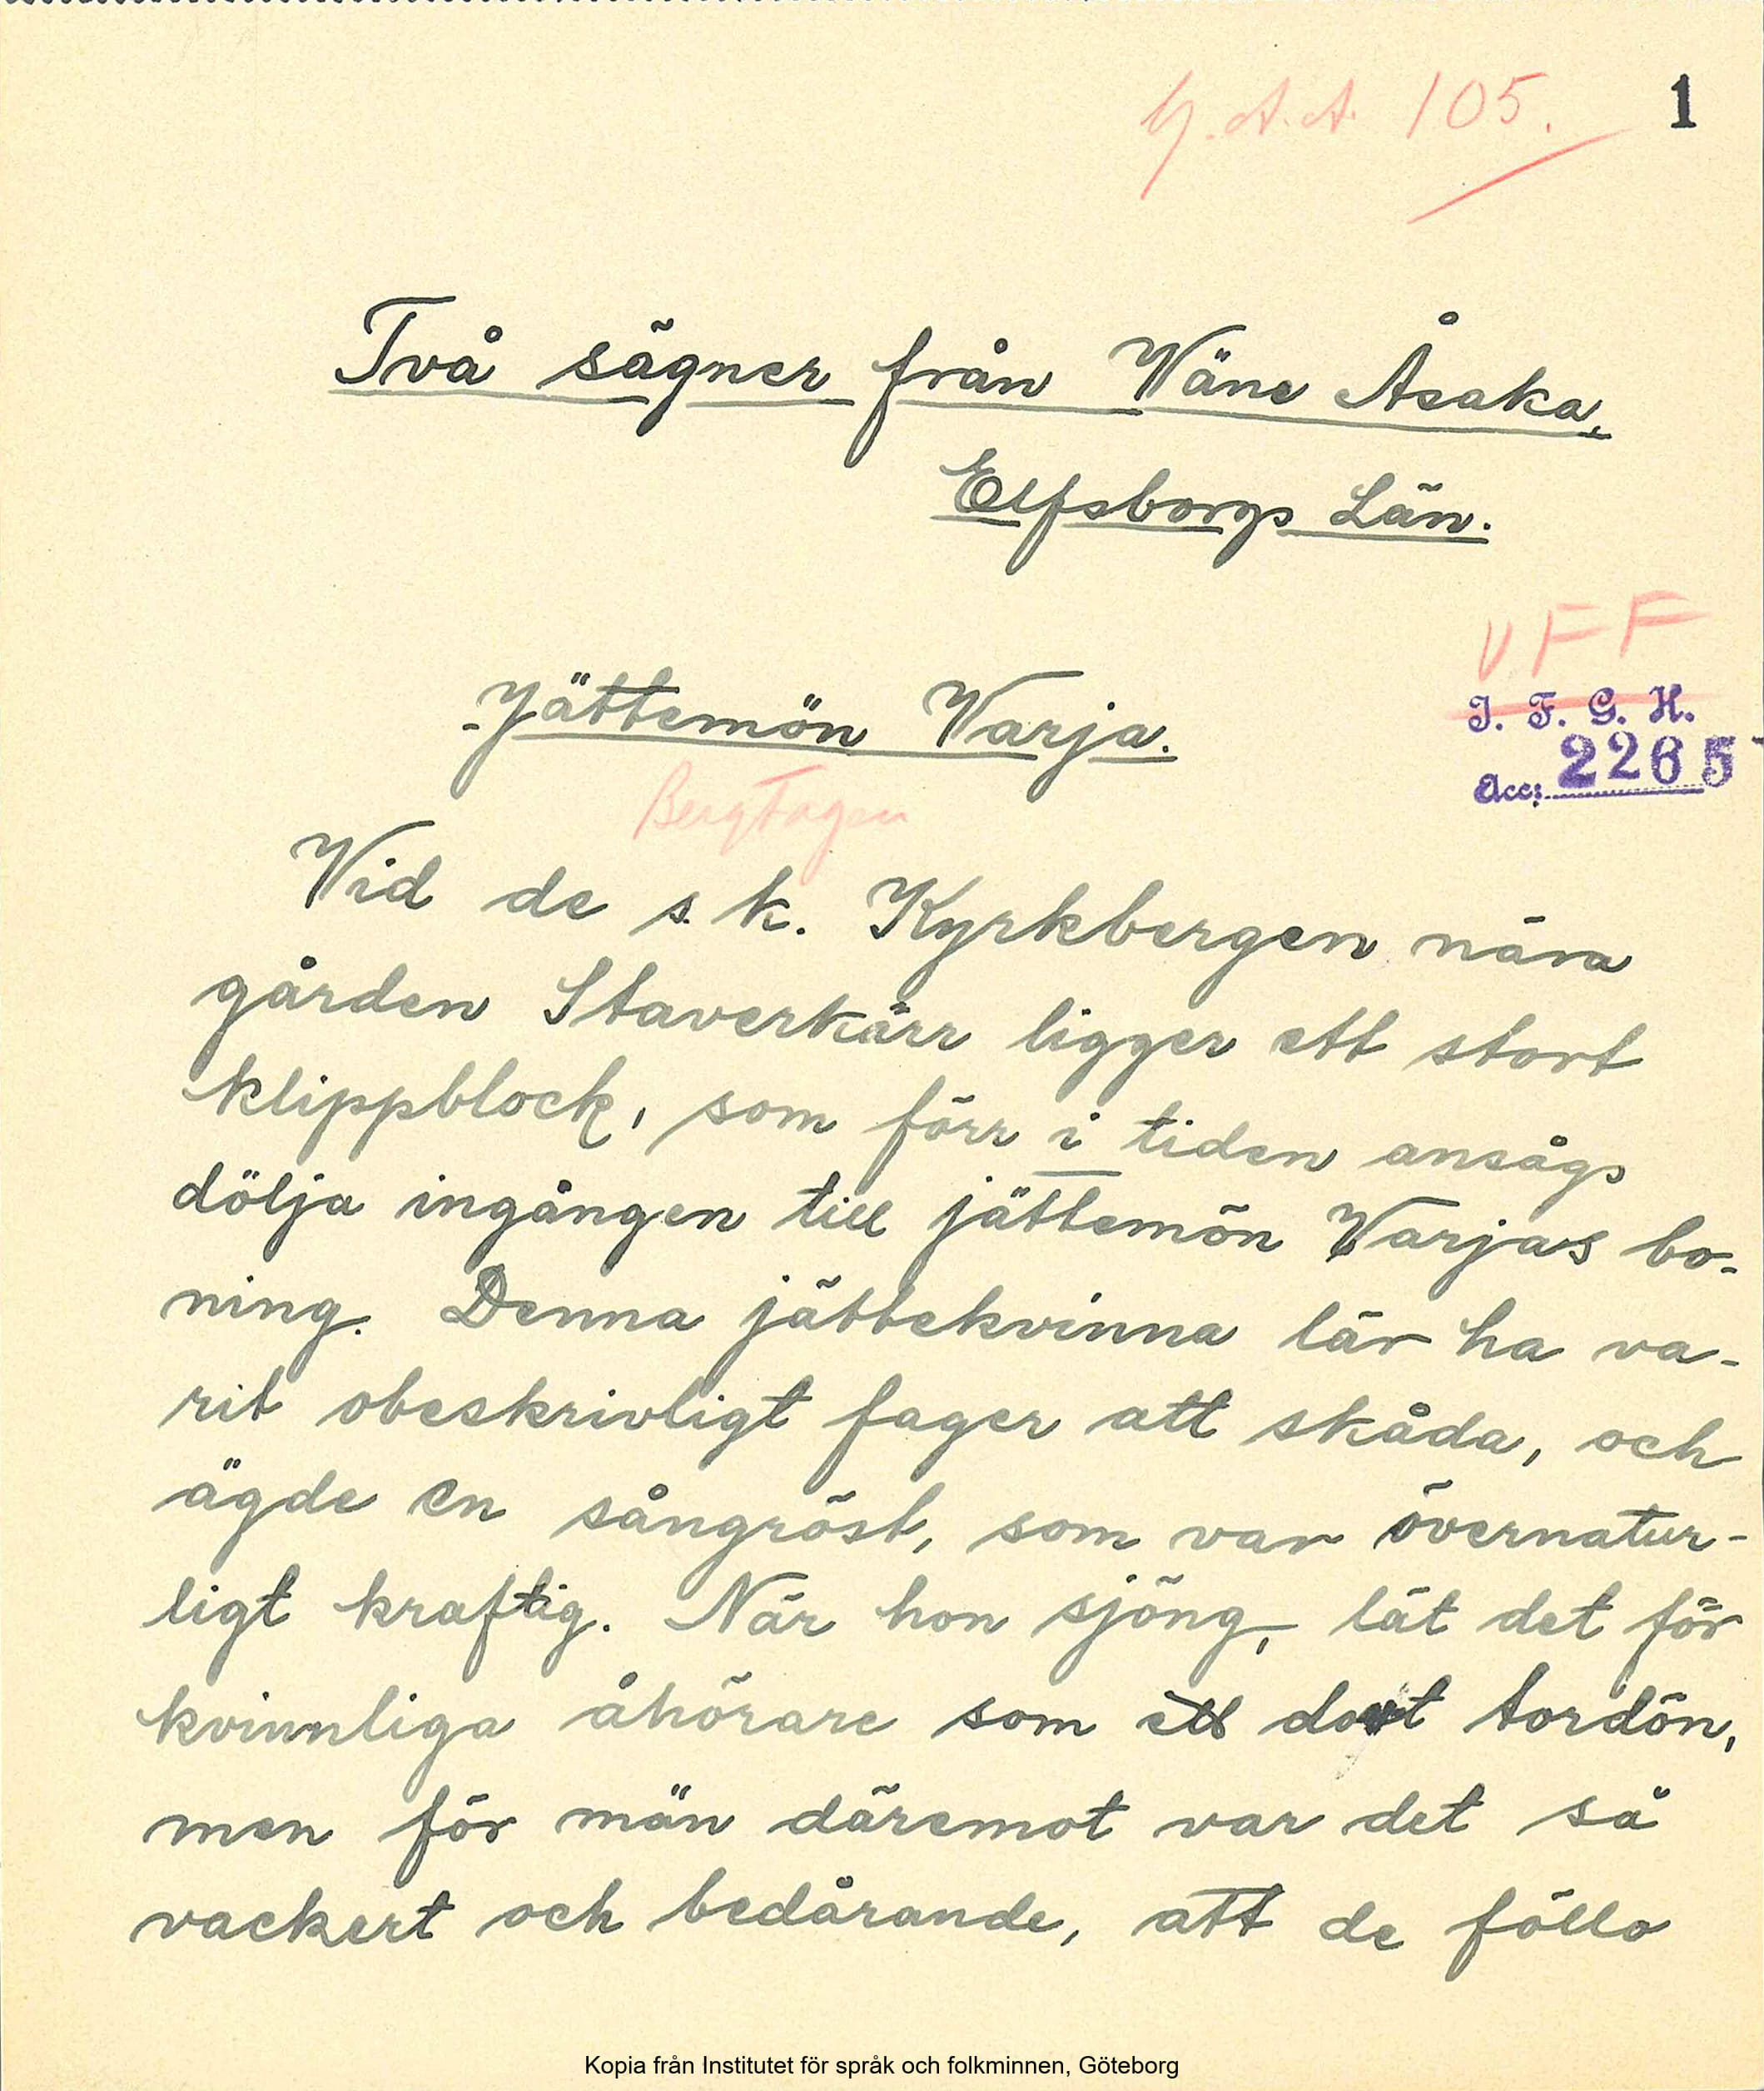 Y.A.A. 105. 1
Två sägner från Väne Åsaka,
Elfsborgs Län.
VFF
I. F. G. H.
Acc: 2265
Jättemön Varja.
Bergtagen
Vid de s. k. Kyrkbergen nära
gården Staverkärr ligger ett stort
klippblock, som förr i tiden ansågs
dölja ingången till jättemön Varjas bo-
ning. Denna jättekvinna lär ha va-
rit obeskrivligt fager att skåda, och
ägde en sångröst, som var övernatur-
ligt kraftig. När hon sjöng, lät det för
kvinnliga åhörare som ett dovt tordön,
men för män däremot var det så
vackert och bedårande, att de föllo
Kopia från Institutet för språk och folkminnen, Göteborg